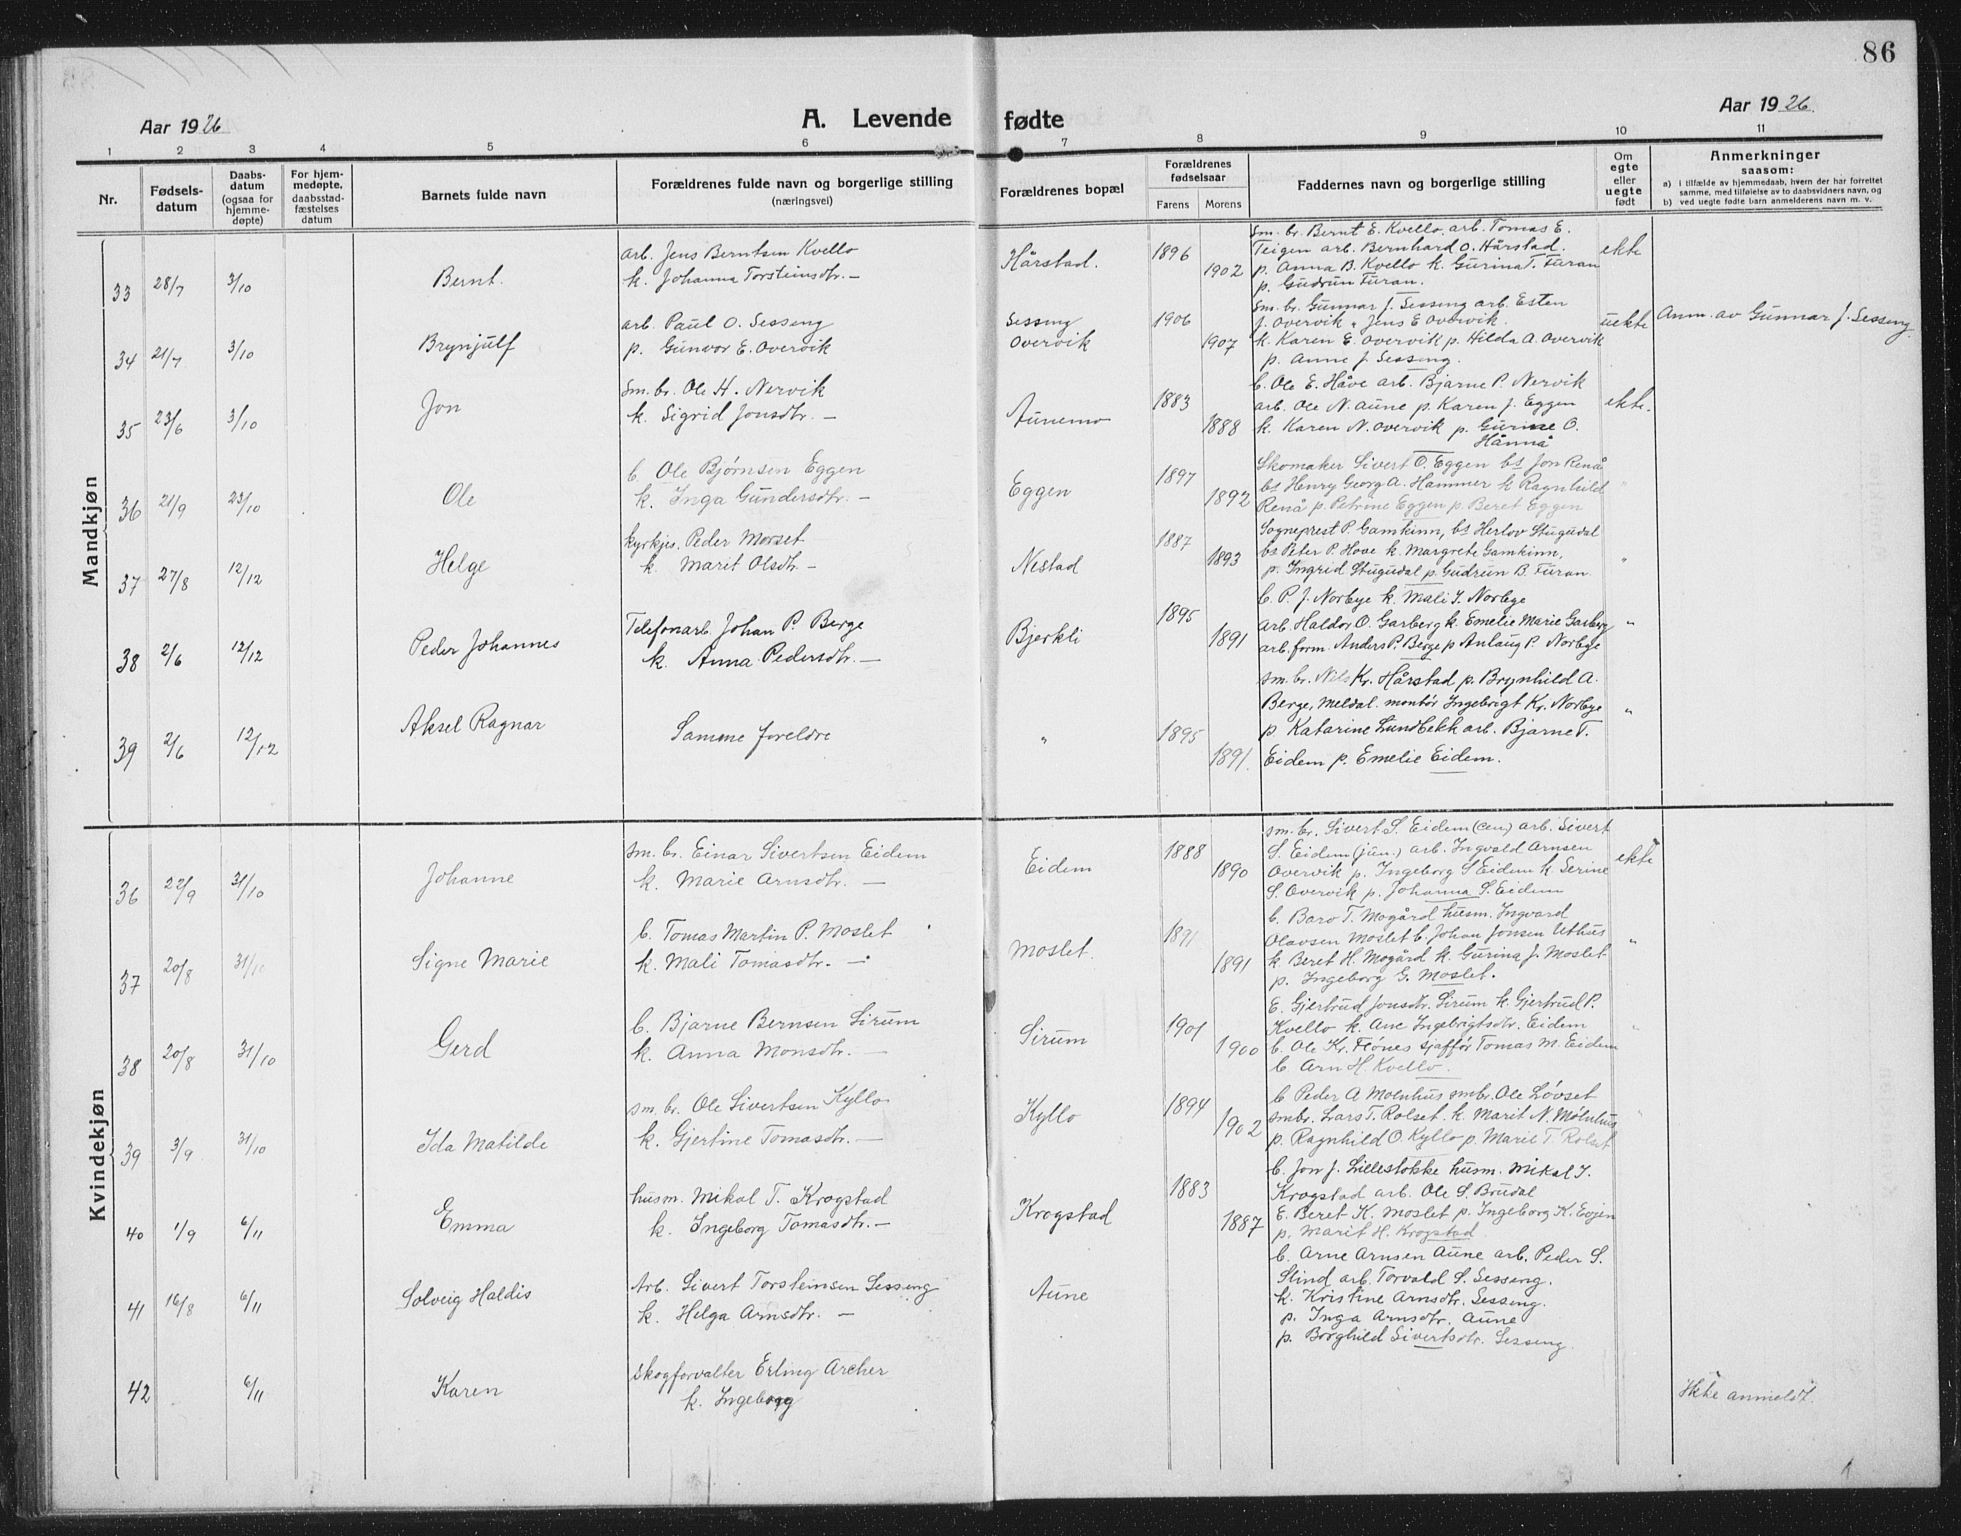 86
Aar 1926
A. Levende fødte
Aar 1926
1 2 3 4 5 6 7 8 9 10 11
Nr.
Fødsels-
datum
Daabs-
datum
(ogsaa for
hjemme-
døpte)
For hjem-
medøpte,
daabsstad-
fæstelses
datum
Barnets fulde navn
Forældrenes fulde navn og borgerlige stilling
(næringsvei)
Forældrenes bopæl
Forældrenes
fødselsaar
Farens Morens
Faddernes navn og borgerlige stilling
Om
egte
eller
uegte
født
Anmerkninger
saasom:
a) i tilfælde av hjemmedaab, hvem der har forrettet
samme, med tilføielse av to daabsvidners navn, og
b) ved uegte fødte barn anmelderens navn m. v.
Mandkjøn
33 28/7 3/10 Bernt.
arb. Jens Berntsen Kvello
k. Johanna Torsteinsdtr. —
Hårstad. 1896 1902
sm. br. Bernt E. Kvello, arb. Tomas E.
Teigen arb. Bernhard O. Hårstad.
p. Anna B. Kvello k. Gurina T. Furan
p. Gudrun Furan.
ekte
34 21/7 3/10 Brynjulf
arb. Paul O. Sesseng
p. Gunvor E. Overvik
Sesseng
Overvik
1906 1907
sm. br. Gunnar J. Sesseng arb. Esten
J. Overvik " Jens E Overvik.
k. Karen E. Overvik p. Hilda A. Overvik
p. Anne J. Sesseng.
uekte
Anm. av Gunnar J. Sesseng.
35 23/6 3/10 Jon
sm. br. Ole H. Nervik
k. Sigrid Jonsdtr. —
Aunemo 1883 1888
b. Ole E. Håve arb. Bjarne P. Nervik
arb. Ole N. Aune p. Karen J. Eggen
k. Karen N. Overvik p. Gurine O.
Hånnå
ekte.
36 21/9 23/10 Ole
b. Ole Bjørnsen Eggen
k. Inga Gundersdtr. —
Eggen 1897 1892
Skomaker Sivert O. Eggen bs Jon Renå
bs Henry Georg A. Hammer k Ragnhild
Renå p. Petrine Eggen p Beret Eggen
"
37 27/8 12/12 Helge
kyrkjes. Peder Morset
k. Marit Olsdtr. —
Nestad 1887 1893
Sogneprest P. Gamkinn, bs Herlov Stugudal
bs Peter P. Hove k. Margrete Gamkinn,
p. Ingrid Stugudal p. Gudrun B. Furan.
"
38 2/6 12/12 Peder Johannes
Telefonarb. Johan P. Berge
k. Anna Pedersdtr. —
Bjerkli 1895 1891
b. P. J. Norbye k. Mali J. Norbye
arb. Haldor O. Garberg k. Emelie Marie Garberg
arb. form. Anders P. Berge p Anlaug P. Norbye
"
39 2/6 12/12 Aksel Ragnar
Samme foreldre
" 1895 1891.
sm. br. Nils Kr. Hårstad p. Brynhild A.
Berge, Meldal. montør Ingebrigt Kr. Norbye
p Katarine Lundbekk arb. Bjarne T.
Eidem p. Emelie Eidem.
"
Kvindekjøn
36 22/9 31/10 Johanne
sm. br. Einar Sivertsen Eidem
k. Marie Arnsdtr. —
Eidem 1888 1890
sm. br. Sivert S. Eidem (sen) arb. Sivert
S. Eidem (jun.) arb. Ingvald Arnsen
Overvik p. Ingeborg S Eidem k. Serine
S. Overvik p. Johanna S. Eidem
ekte
37 20/8 31/10 Signe Marie
b. Tomas Martin P. Moslet
k. Mali Tomasdtr. —
Moslet. 1891
b. Baro T. Mogård husm. Ingvard
Olavsen Moslet b. Johan Jonsen Uthus
k. Beret H. Mogård k. Gurina J. Moslet
p. Ingeborg G. Moslet.
"
38 20/8 31/10 Gerd
b. Bjarne Bernsen Sirum
k. Anna Monsdtr. —
Sirum 1901 1900
E. Gjertrud Jonsdtr. Sirum k. Gjertrud P.
Kvello k. Ane Ingebrigtsdtr. Eidem
b. Ole Kr. Flønes sjaffør Tomas M. Eidem
b. Arn H. Kvello.
"
39 3/9 31/10 Ida Matilde
sm. br. Ole Sivertsen Kyllo
k. Gjertine Tomasdtr. —
Kyllo 1894 1902
b Peder A Moenhus smbr. Ole Løvset
smbr. Lars T. Rolset. k. Marit N. Mølnhus
p. Ragnhild O. Kyllo p. Marie T. Rolset
"
40 1/9 6/11 Emma
husm. Mikal T. Krogstad
k. Ingeborg Tomasdtr. —
Krogstad 1883 1887
b. Jon J. Lillestokke husm. Mikal J.
Krogstad arb. Ole S. Brudal
E. Beret K. Moslet p. Ingeborg K. Evjen
p. Marit H. Krogstad
41 16/8 6/11 Solveig Haldis
Arb. Sivert Torsteinsen Sesseng
k. Helga Arnsdtr. —
Aune
b. Arne Arnsen Aune arb. Peder S.
Slind arb. Torvald S. Sesseng.
k. Kristine Arnsdtr. Sesseng.
p. Inga Arnsdtr. Aune
p. Borghild Sivertsdtr. Sesseng.
42 6/11 Karen
Skogforvalter Erling Archer
k. Ingeborg
Ikke anmeldt.